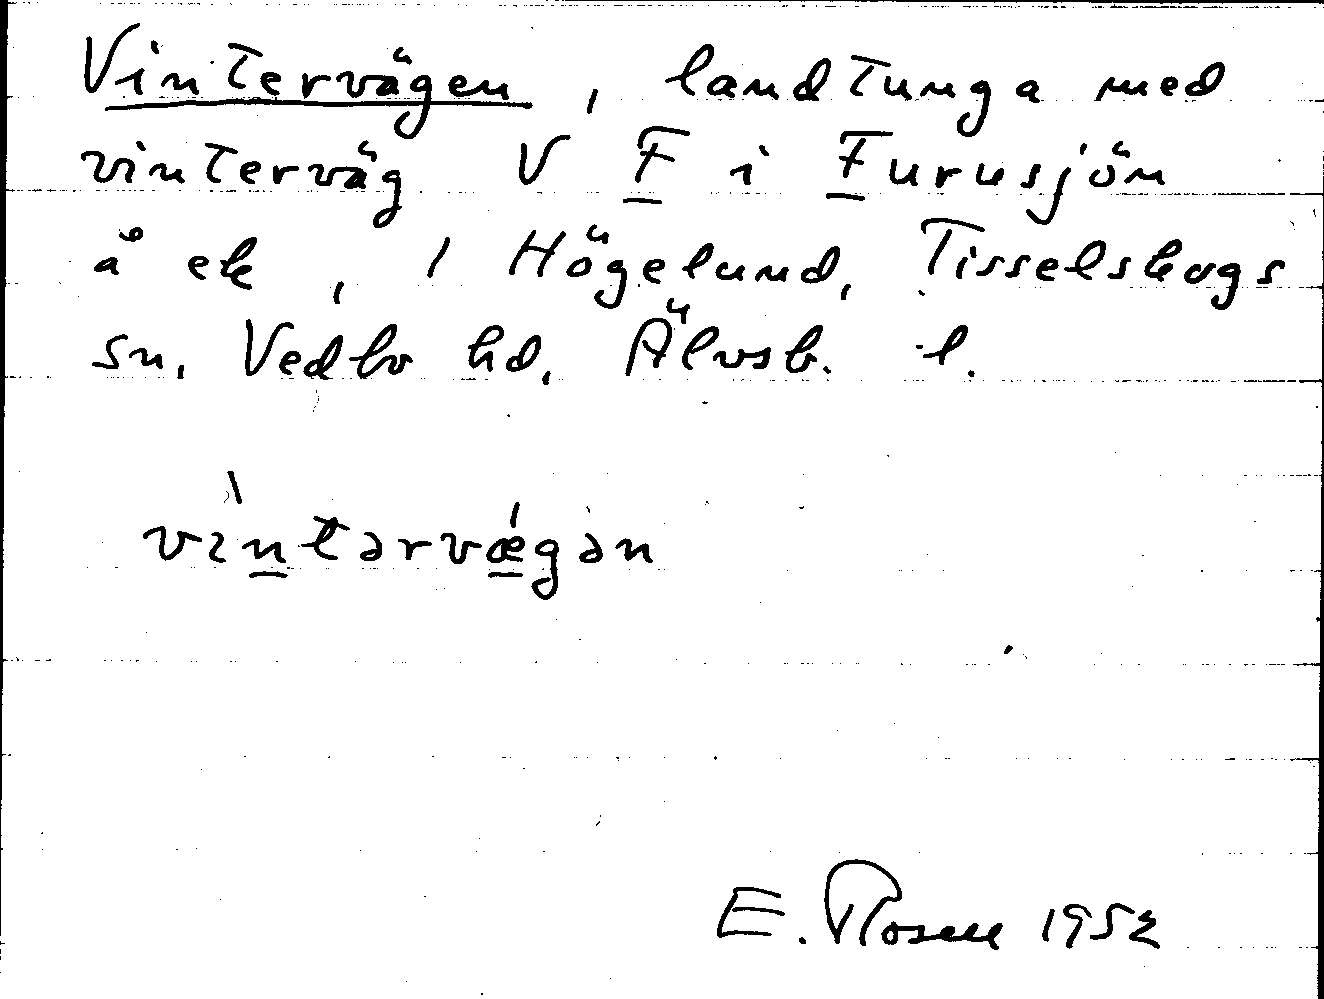 Vintervägen, landtunga med
vinterväg V F i Furusjön
å ek, 1 Högelund, Tisselskogs
sn. Vedbo hd, Älvsb. l.
vìntərvǽgən
E. Rosell 1952